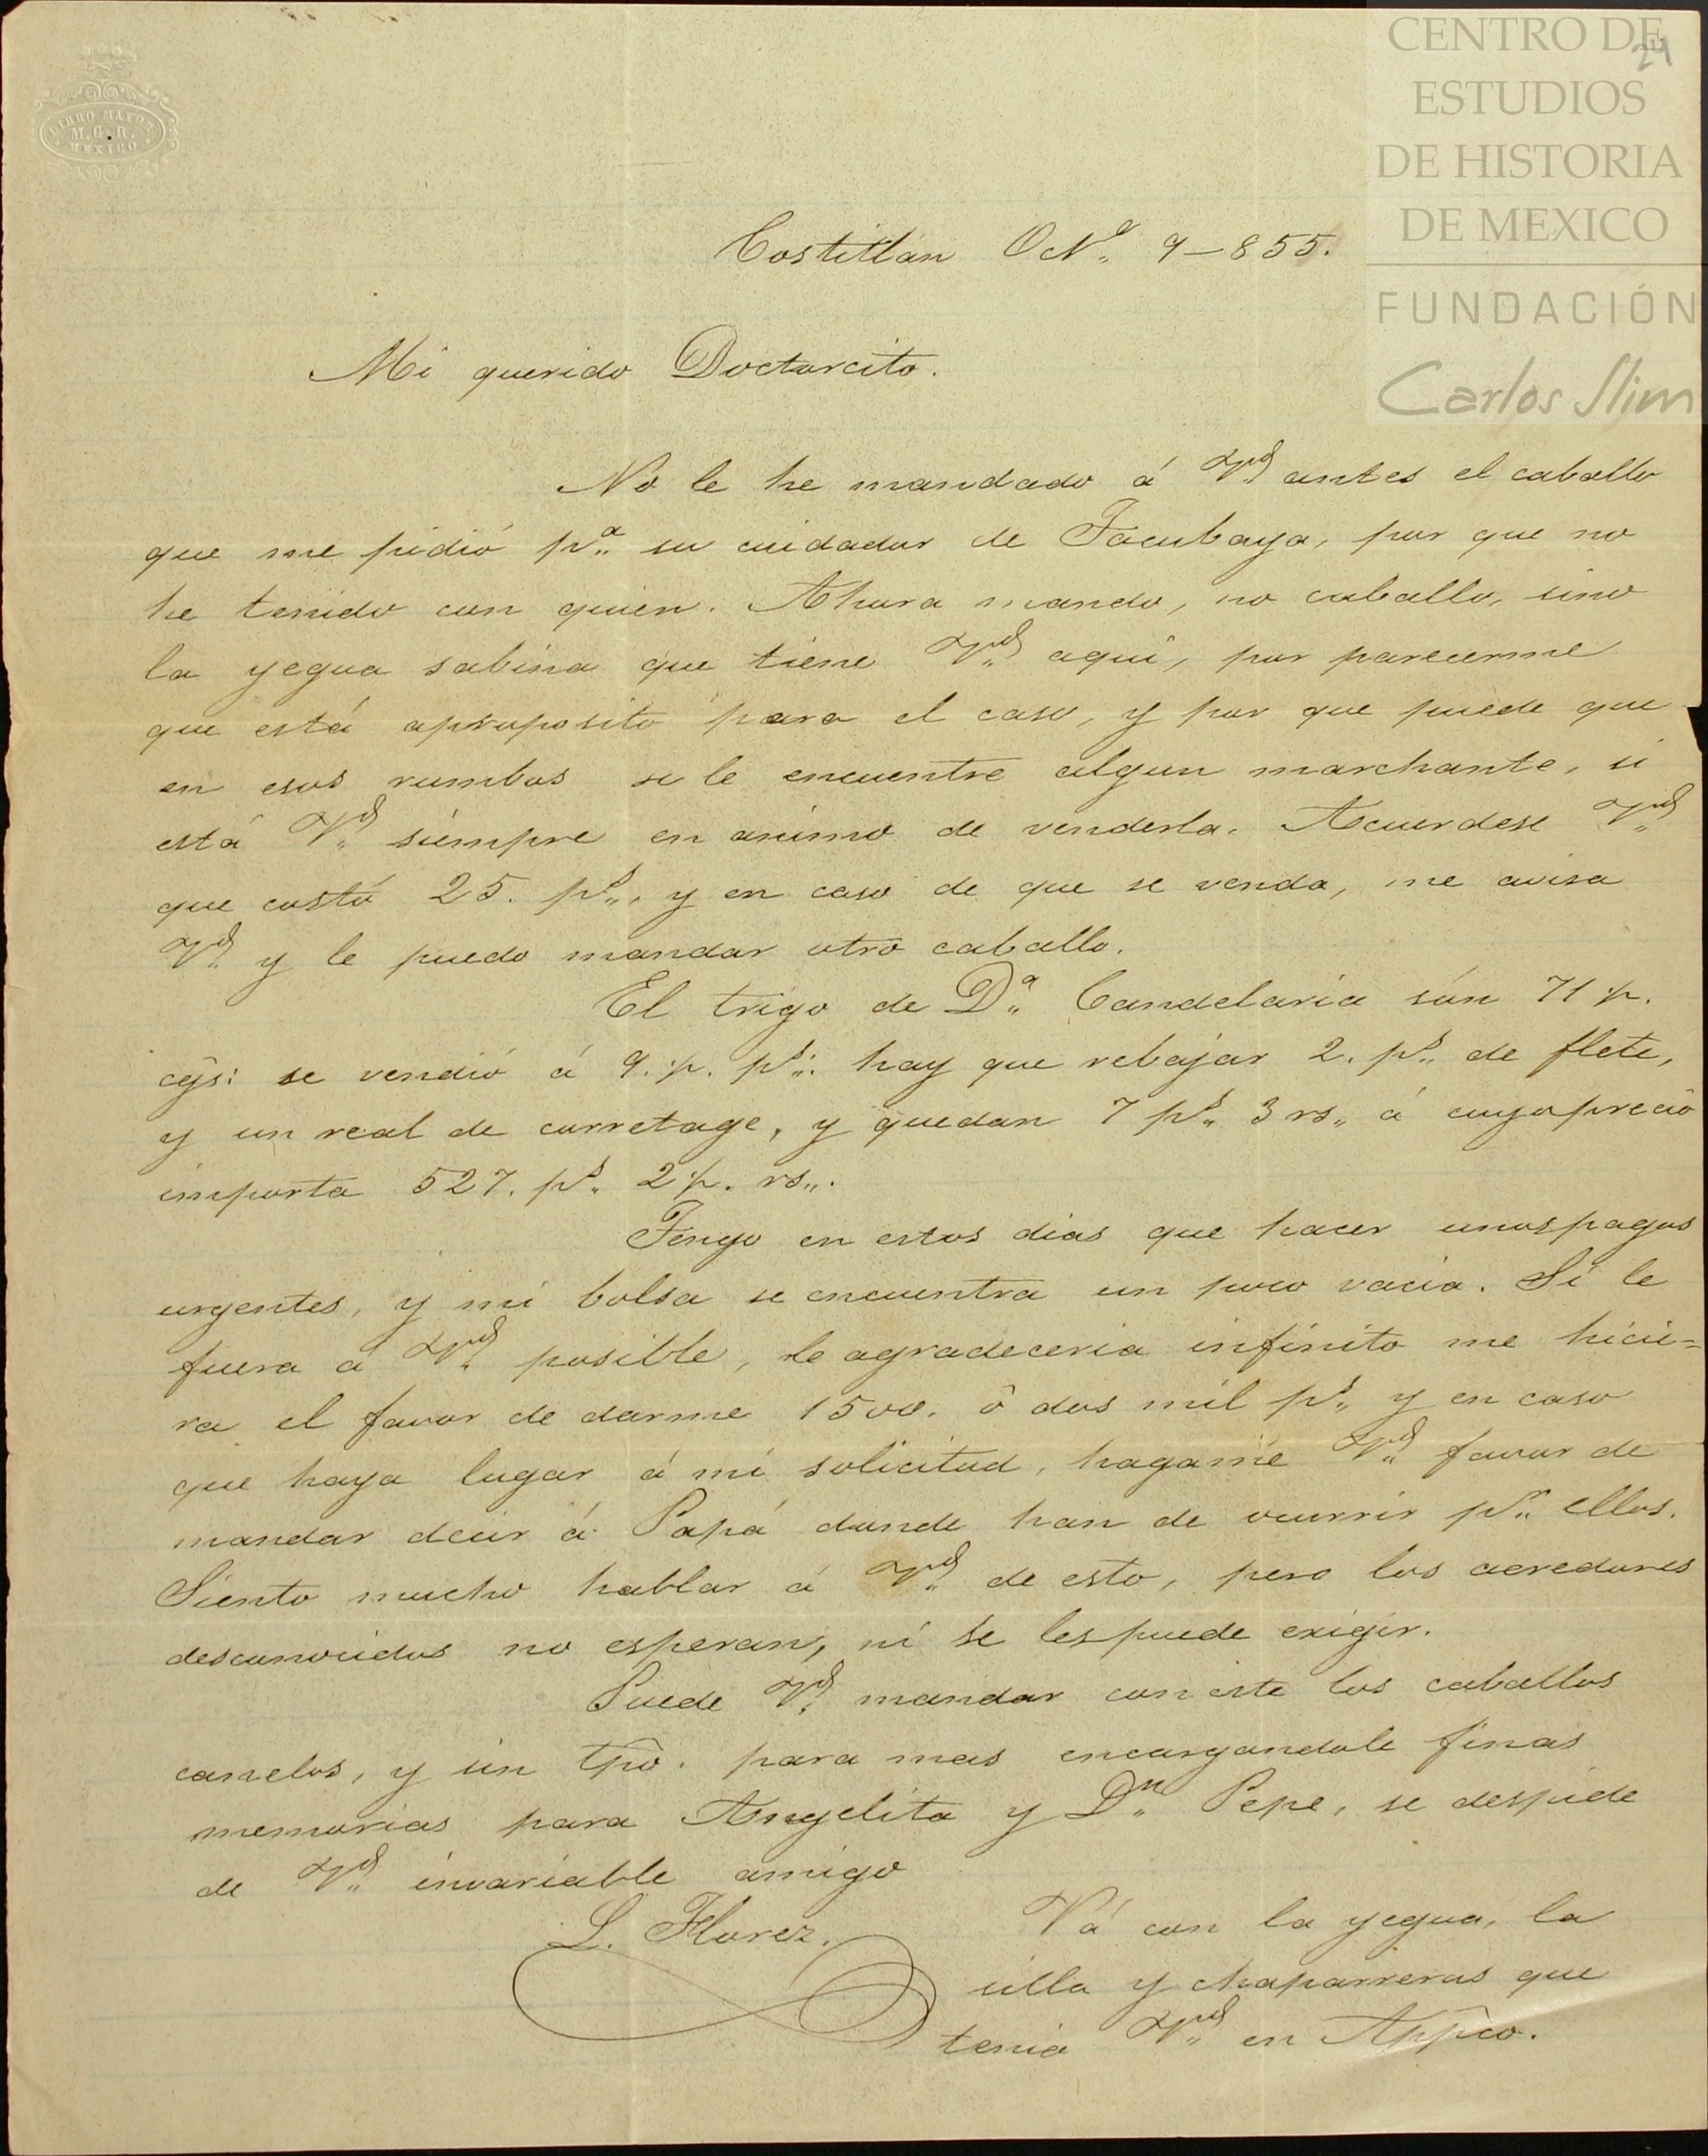 LIBRO MAYOR
M.G.R.
MEXICO
CENTRO DE
ESTUDIOS
DE HISTORIA
DE MEXICO
FUNDACIÓN
Carlos Slim
24
Costitlán Oct.e 9-855.
Mi querido Doctorcito.
No le he mandado á Vd. antes el caballo
que me pidió p.a su cuidador de Tacubaya, por que no
he tenido con quien. Ahora mando, no caballo, sino
la yegua sabina que tiene Vd. aquí, por parecerme
que está apropósito para el caso, y por que puede que
en esos rumbos se le encuentre algun marchante, si
está Vd. siempre en animo de venderla. Acuerdese Vd.
que costó 25. p.s, y en caso de que se venda, me avisa
Vd. y le puedo mandar otro caballo.
El trigo de D.a Candelaria són 71 ½.
cgs: se vendió á 9. ½. p.s: hay que rebajar 2. p.s de flete,
y un real de corretage, y quedan 7 p.s 3 rs., á cuyo precio
importa 527. p.s 2 ½. rs..
Tengo en estos dias que hacer unos pagos
urgentes, y mi bolsa se encuentra un poco vacia. Si le
fuera á Vd. posible, le agradeceria infinito me hicie=
ra el favor de darme 1500. ó dos mil p.s y en caso
que haya lugar á mi solicitud, hagame Vd. favor de
mandar decir á Papá donde han de ocurrir p.r ellos.
Siento mucho hablar á Vd. de esto, pero los acredores
desconocidos no esperan, ni se les puede exigir.
Puede Vd. mandar con este los caballos
canelos, y sin tpô. para mas encargandole finas
memorias para Angelita y D.n Pepe, se despide
de Vd. invariable amigo
L. Florez.
Vá con la yegua, la
silla y chaparreras que
tenia Vd. en Appco.